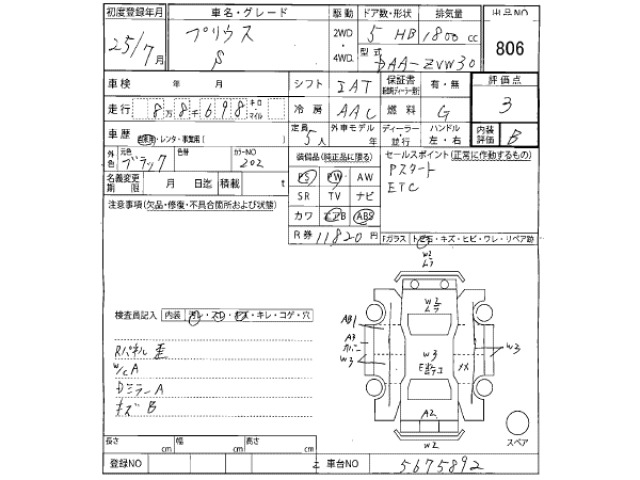 初度登録年月 車名・グレード 駆動 ドア数・形状 排気量 出品NO
25/7月 プリウス S 2WD・4WD. 5 HB 1800cc 806
型式 DAA-ZVW30
車検 年 月 シフト IAT 保証書 有・無 評価点
走行 8万8千698キロ・マイル 冷房 AAC 燃料 G 3
車歴 自家用・レンタ・事業園( ) 定員 5人 外車モデル 年 ディーラー・並行 ハンドル 左・右 内装評価 B
外色 元色 ブラック 色替 カラーNO 202 装備品(純正品に限る) セールスポイント(正常に作動するもの)
PS PW AW Pスタート
名義変更期限 月 日迄 積載 t SR TV ナビ ETC
注意事項(欠品・修復・不具合箇所および状態) カワ エアB ABS
R券 11820円 Fガラス トビ石・キズ・ヒビ・ワレ・リペア跡
W2
ムラ
W2
ムラ
検査員記入 内装 汚レ・スレ・キズ・キレ・コゲ・穴
AB1
A3
カバー
W3
W3
W3
Rパネル 歪
W/C A
Dミラー A
キズ B
A2
W2
スペア
長さ cm 幅 cm 高さ cm
登録NO 車台NO 5675892